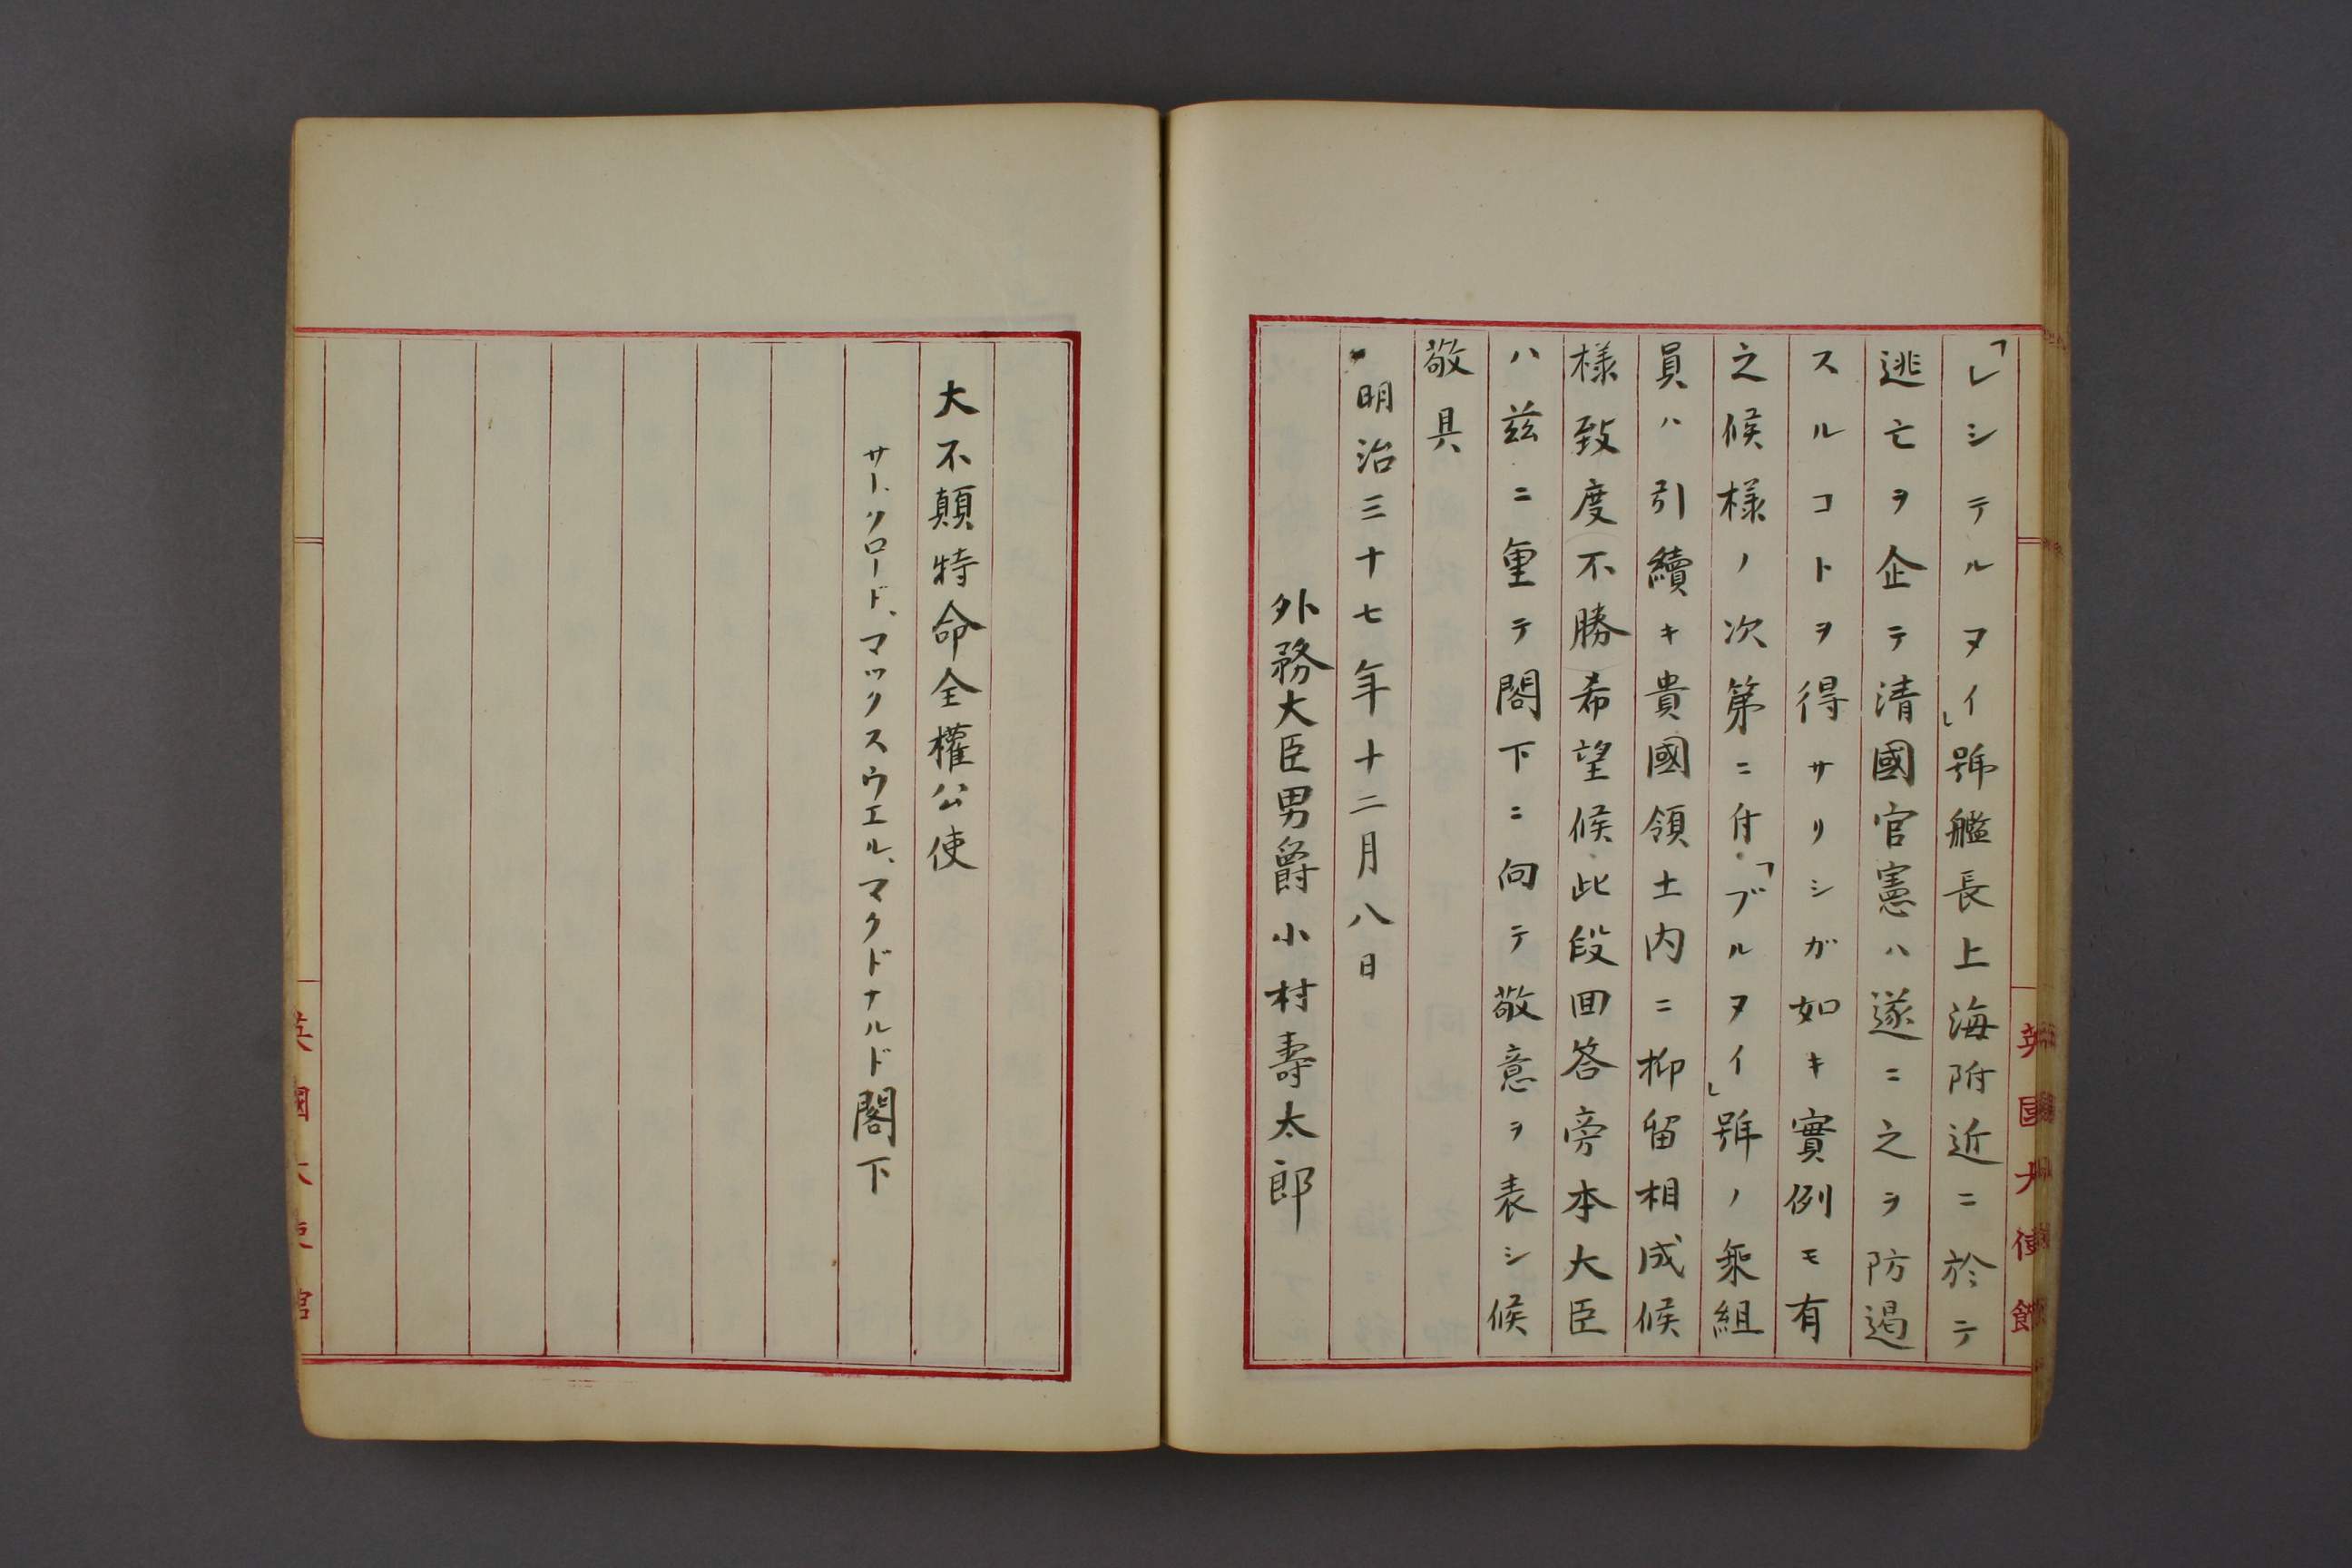 「レシテルヌイ」號艦長上海附近ニ於テ
逃亡ヲ企テ清國官憲ハ遂ニ之ヲ防遏
スルコトヲ得サリシガ如キ實例モ有
之候樣ノ次第ニ付「ブルヌイ」號ノ乘組
員ハ引續キ貴國領土内ニ抑留相成候
樣致度不勝希望候此段回答旁本大臣
ハ茲ニ重テ閣下ニ向テ敬意ヲ表シ候
敬具
明治三十七年十二月八日
外務大臣男爵小村壽太郎
大不顛特命全權公使
サー、クロード、マックスウエル、マクドナルド閣下
英國大使館